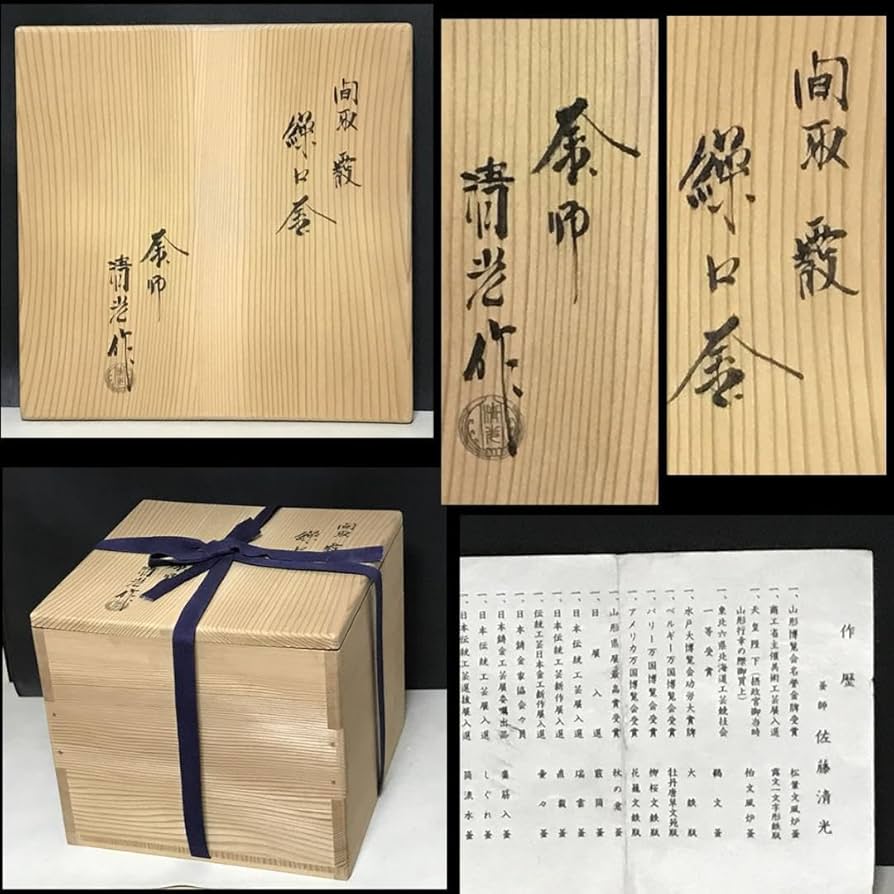 間取 霰
繰口釜
釜師
清光作
釜師
清光作
間取 霰
繰口釜
間取 霰
清光作
作歴
釜師 佐藤清光
一、山形博覧会名誉金牌受賞 松葉文風炉釜
一、商工省主催美術工芸展入選 霰文一文字形鉄瓶
一、天皇陛下(摂政宮御当時 柏文風炉釜
山形行幸の際御買上)
一、東北六県北海道工芸競技会
一等受賞 鶴文釜
一、水戸大博覧会功労大賞牌 大鉄瓶
一、ベルギー万国博覧会受賞 牡丹唐草文鉄瓶
一、パリー万国博覧会受賞 柳桜文鉄瓶
一、アメリカ万国博覧会受賞 花籠文鉄瓶
一、山形県展最高賞受賞 秋の意釜
一、日展入選 霰筒釜
一、日本伝統工芸展入選 瑞雲釜
一、日本伝統工芸新作展入選 釜
一、伝統工芸日本金工新作展入選 釜
一、日本鋳金家協会々員
一、日本鋳金工芸展委嘱出品 筋入釜
一、日本伝統工芸展入選 しぐれ釜
一、日本伝統工芸選抜展入選 筒流水釜